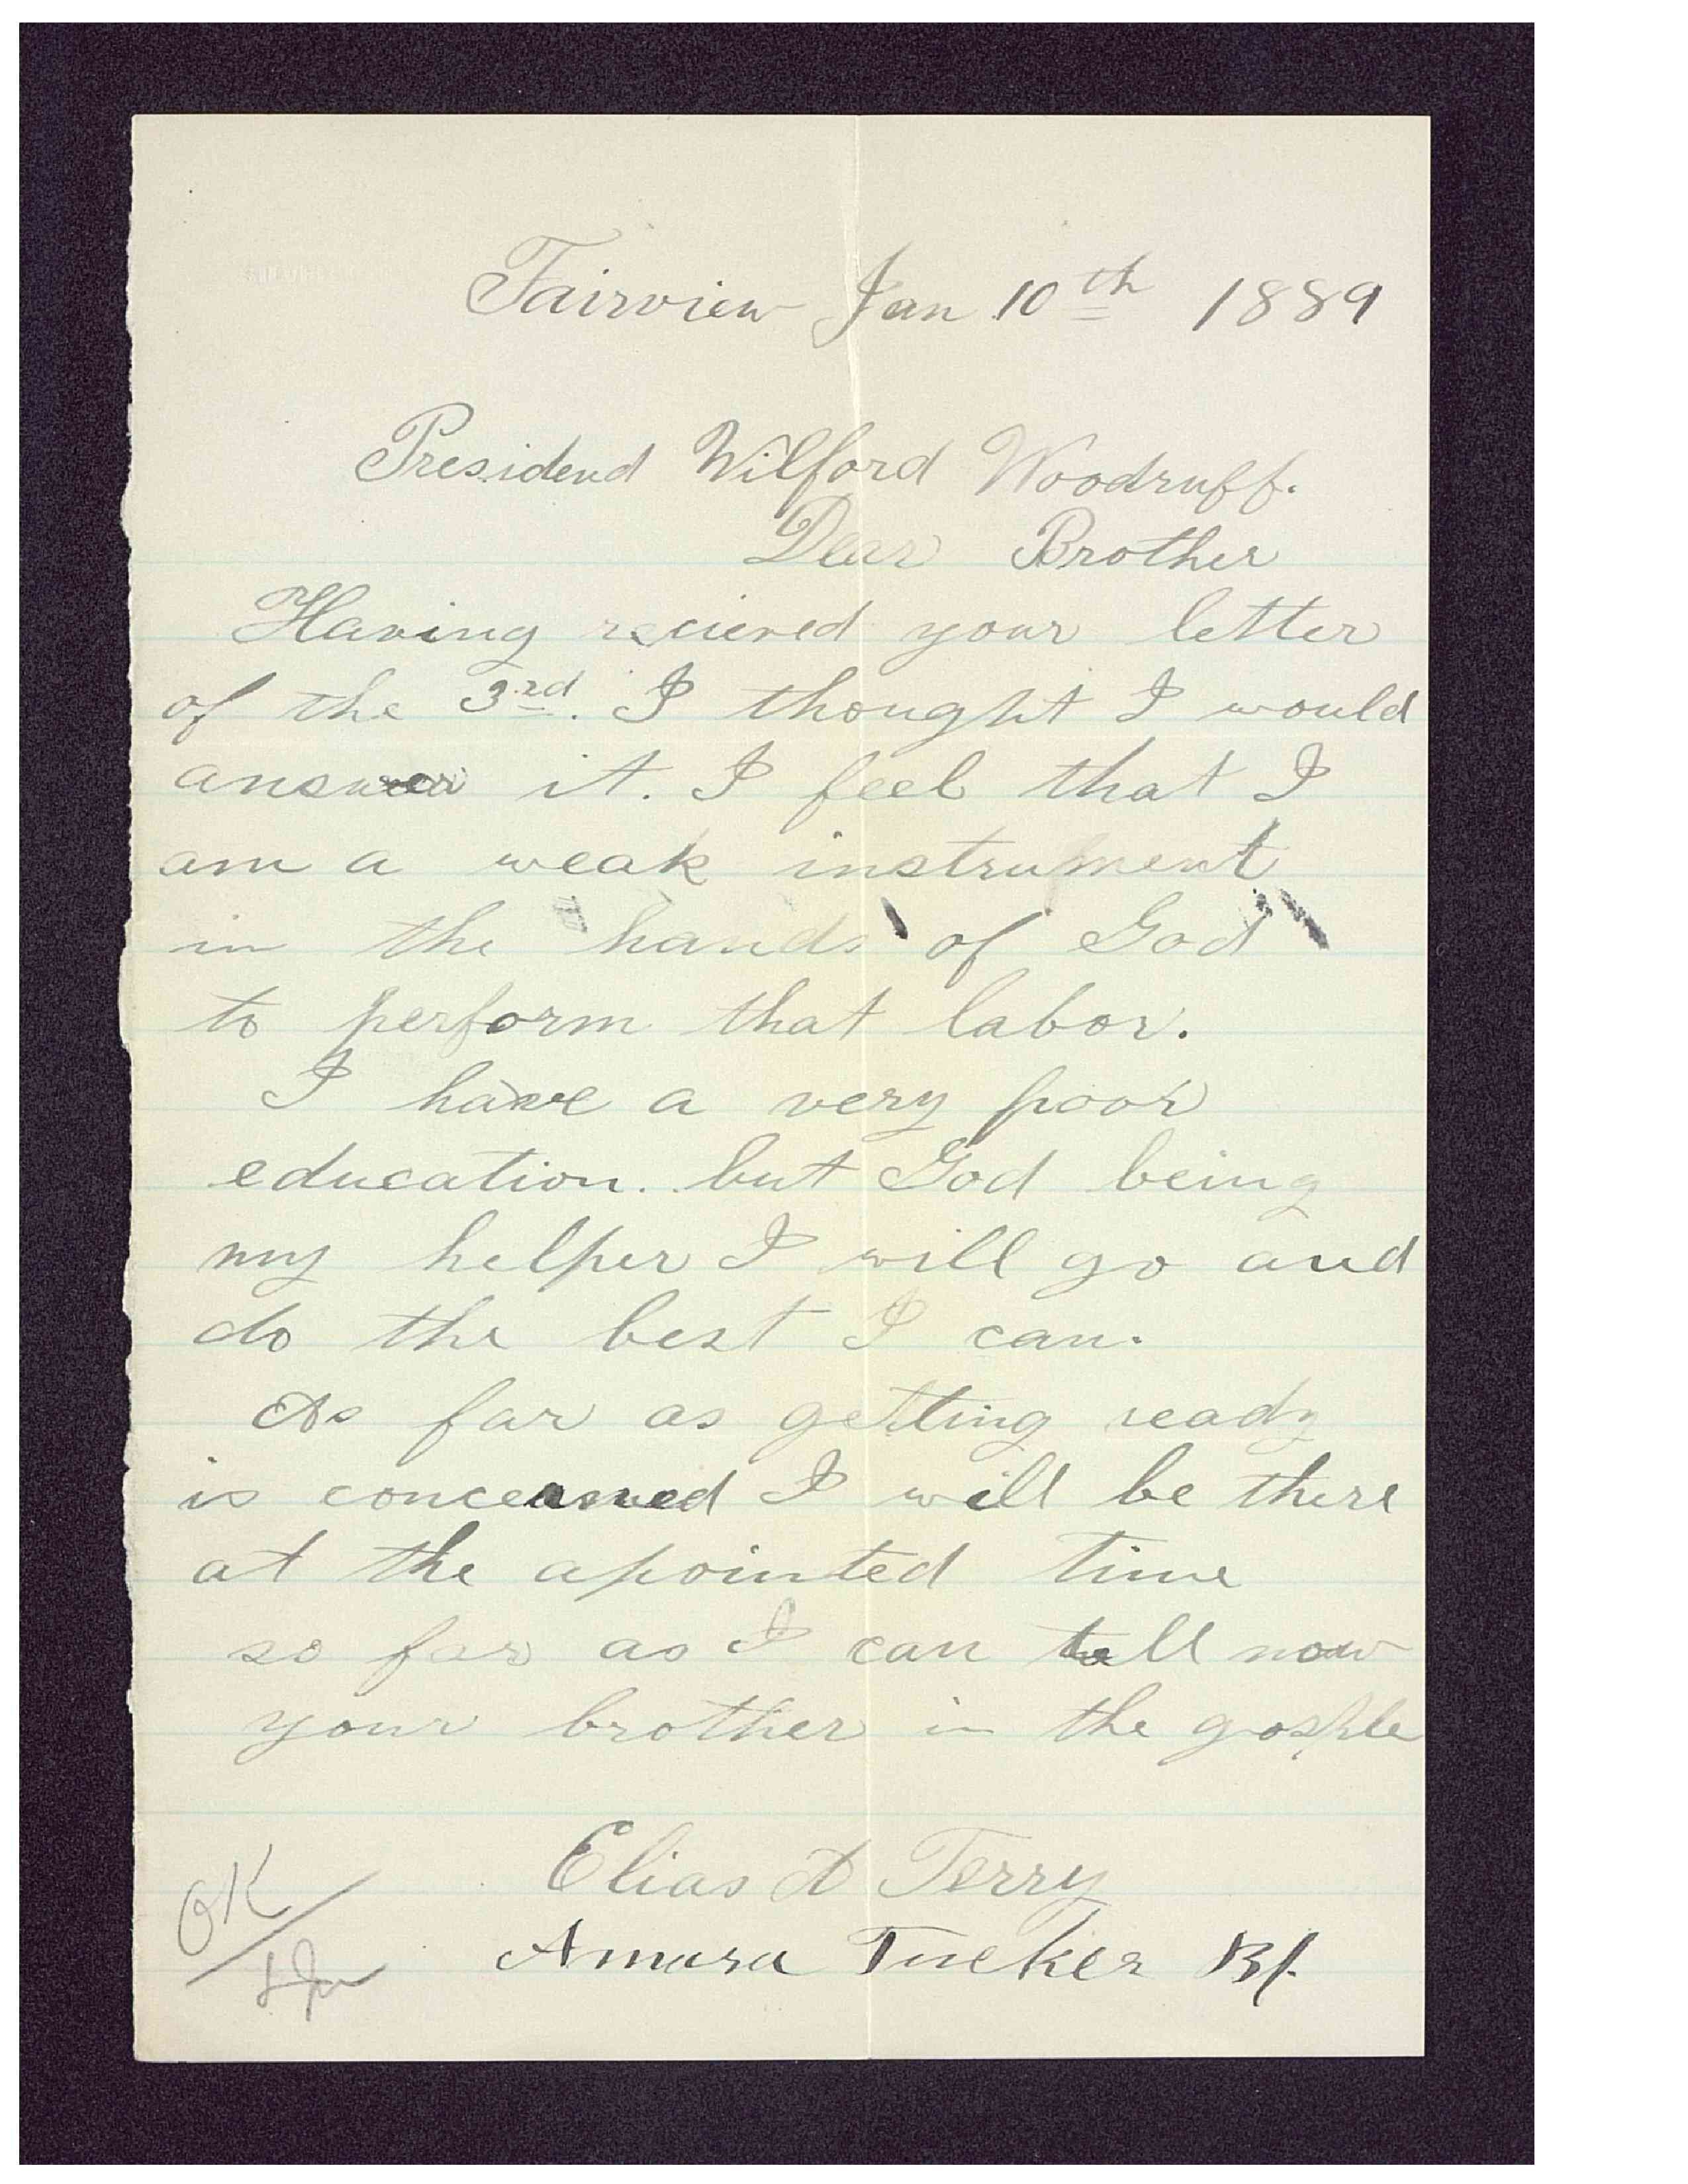 Fairview Jan 10th 1889
Presidend Wilford Woodruff.
Dear Brother
Having recieved your letter
of the 3rd. I thought I would
answer it. I feel that I
am a weak instrument
in the hands of God
to perform that labor.
I have a very poor
education. but God being
my helper I will go and
do the best I can.
As far as getting ready
is concerned I will be there
at the apointed time
so far as I can tell now
your brother in the gosple
Elias A Terry
Amasa Tucker Bp.
OK